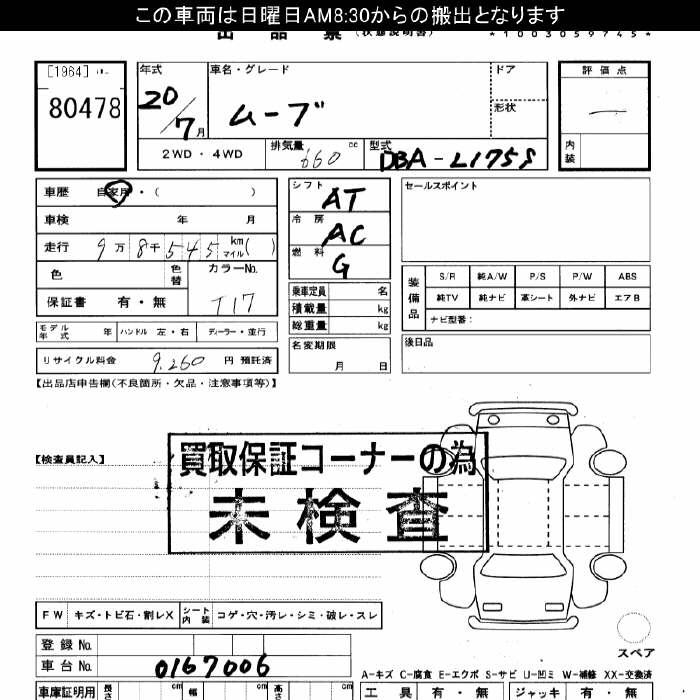 この車両は日曜日AM8:30からの搬出となります
出品票 (状態説明書) *1003059745*
[1964]
80478
年式 車名・グレード ドア 評価点
20/7月 ムーブ 形状 —
2WD・4WD 排気量 660 cc 型式 DBA-L175S 内装
車歴 自家用・( ) シフト AT セールスポイント
車検 年 月 冷房 AC
走行 9万8千545 km マイル ( ) 燃料 G
色 色替 カラーNo. T17
保証書 有・無
乗車定員 名
積載量 kg
総重量 kg
装備品 S/R 純A/W P/S P/W ABS
純TV 純ナビ 革シート 外ナビ エアB
ナビ型番:
モデル年式 年 ハンドル 左・右 ディーラー・並行
名変期限 月 日 後日品
リサイクル料金 9,260 円 預託済
【出品店申告欄(不良箇所・欠品・注意事項等)】
【検査員記入】
買取保証コーナーの為
未検査
FW キズ・トビ石・割レX シート内装 コゲ・穴・汚レ・シミ・破レ・スレ
スペア
登録No.
車台No. 0167006
A-キズ C-腐食 E-エクボ S-サビ U-凹ミ W-補修 XX-交換済
車庫証明用 長さ cm 幅 cm 高さ cm 工具 有・無 ジャッキ 有・無